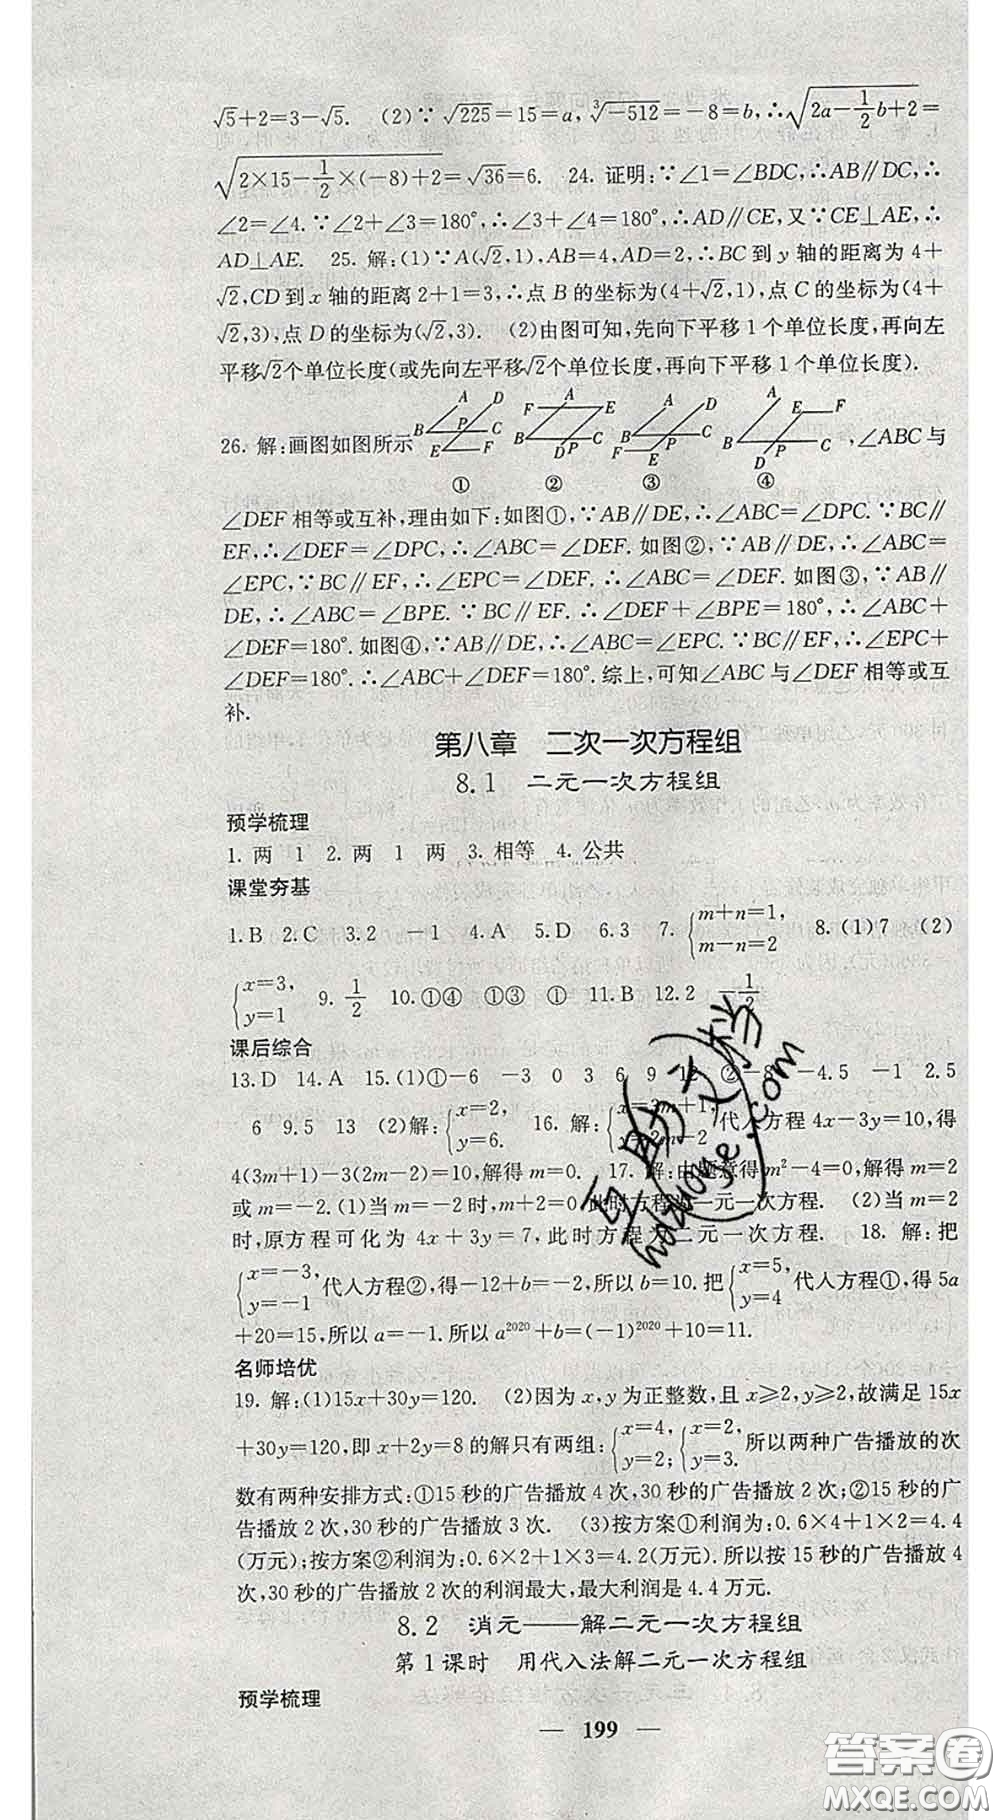 √5+2=3-√5. (2)∵√225=15=a,∛-512=-8=b,∴√(2a-1/2b+2)=
√(2×15-1/2×(-8)+2)=√36=6. 24. 证明:∵∠1=∠BDC,∴AB∥DF,∴
∠2=∠4.∵∠2+∠3=180°,∴∠3+∠4=180°,∴AD∥CE,又∵CE⊥AE,∴
AD⊥AE. 25. 解:(1)∵A(√2,1),AB=4,AD=2,∴BC到y轴的距离为4+
√2,CD到x轴的距离2+1=3,∴点B的坐标为(4+√2,1),点C的坐标为(4+
√2,3),点D的坐标为(√2,3). (2)由图可知,先向下平移1个单位长度,再向左
平移√2个单位长度(或先向左平移√2个单位长度,再向下平移1个单位长度).
A D F A E A D A E F
26. 解:画图如图所示 B P C E F B D P C B P C F E B P C D ,∠ABC与
① ② ③ ④
∠DEF相等或互补,理由如下:如图①,∵AB∥DE,∴∠ABC=∠DPC.∵BC∥
EF,∴∠DEF=∠DPC,∴∠ABC=∠DEF.如图②,∵AB∥DE,∴∠ABC=
∠EPC,∵BC∥EF,∴∠DEF=∠EPC.∴∠ABC=∠DEF.如图③,∵AB∥
DE,∴∠ABC=∠BPE.∵BC∥EF.∴∠DEF+∠BPE=180°,∴∠ABC+
∠DEF=180°.如图④,∵AB∥DE,∴∠ABC=∠EPC.∵BC∥EF,∴∠EPC+
∠DEF=180°.∴∠ABC+∠DEF=180°.综上,可知∠ABC与∠DEF相等或互
补.
第八章 二次一次方程组
8.1 二元一次方程组
预学梳理
1.两 1 2.两 1 两 3.相等 4.公共
课堂夯基
1.B 2.C 3.2 -1 4.A 5.D 6.3 7.{m+n=1, m-n=2 8.(1)7 (2)
{x=3, y=1 9.1/2 10.①④ ①③ ① 11.B 12.2 -1/2
课后综合
13.D 14.A 15.(1)①-6 -3 0 3 6 9 12 ②-8 -4.5 -1 2.5
6 9.5 13 (2)解:{x=2, y=6. 16. 解:{x=3m+1, y=2m-2 代人方程4x-3y=10,得
4(3m+1)-3(2m-2)=10,解得m=0. 17. 解:由题意得m²-4=0,解得m=2
或m=-2.(1)当m=-2时,m+2=0此时方程为一元一次方程. (2)当m=2
时,原方程可化为4x+3y=7,此时方程为二元一次方程. 18. 解:把
{x=-3, y=-1 代人方程②,得-12+b=-2,所以b=10.把{x=5, y=4 代人方程①,得5a
+20=15,所以a=-1.所以a²⁰²⁰+b=(-1)²⁰²⁰+10=11.
名师培优
19. 解:(1)15x+30y=120. (2)因为x,y为正整数,且x≥2,y≥2,故满足15x
+30y=120,即x+2y=8的解只有两组:{x=4, y=2;{x=2, y=3. 所以两种广告播放的次
数有两种安排方式:①15秒的广告播放4次,30秒的广告播放2次;②15秒的广
告播放2次,30秒的广告播放3次. (3)按方案①利润为:0.6×4+1×2=4.4
(万元);按方案②利润为:0.6×2+1×3=4.2(万元).所以按15秒的广告播放4
次,30秒的广告播放2次的利润最大,最大利润是4.4万元.
8.2 消元——解二元一次方程组
第1课时 用代入法解二元一次方程组
预学梳理
— 199 —
答案圈
MXQE.COM
hdzuoye.com